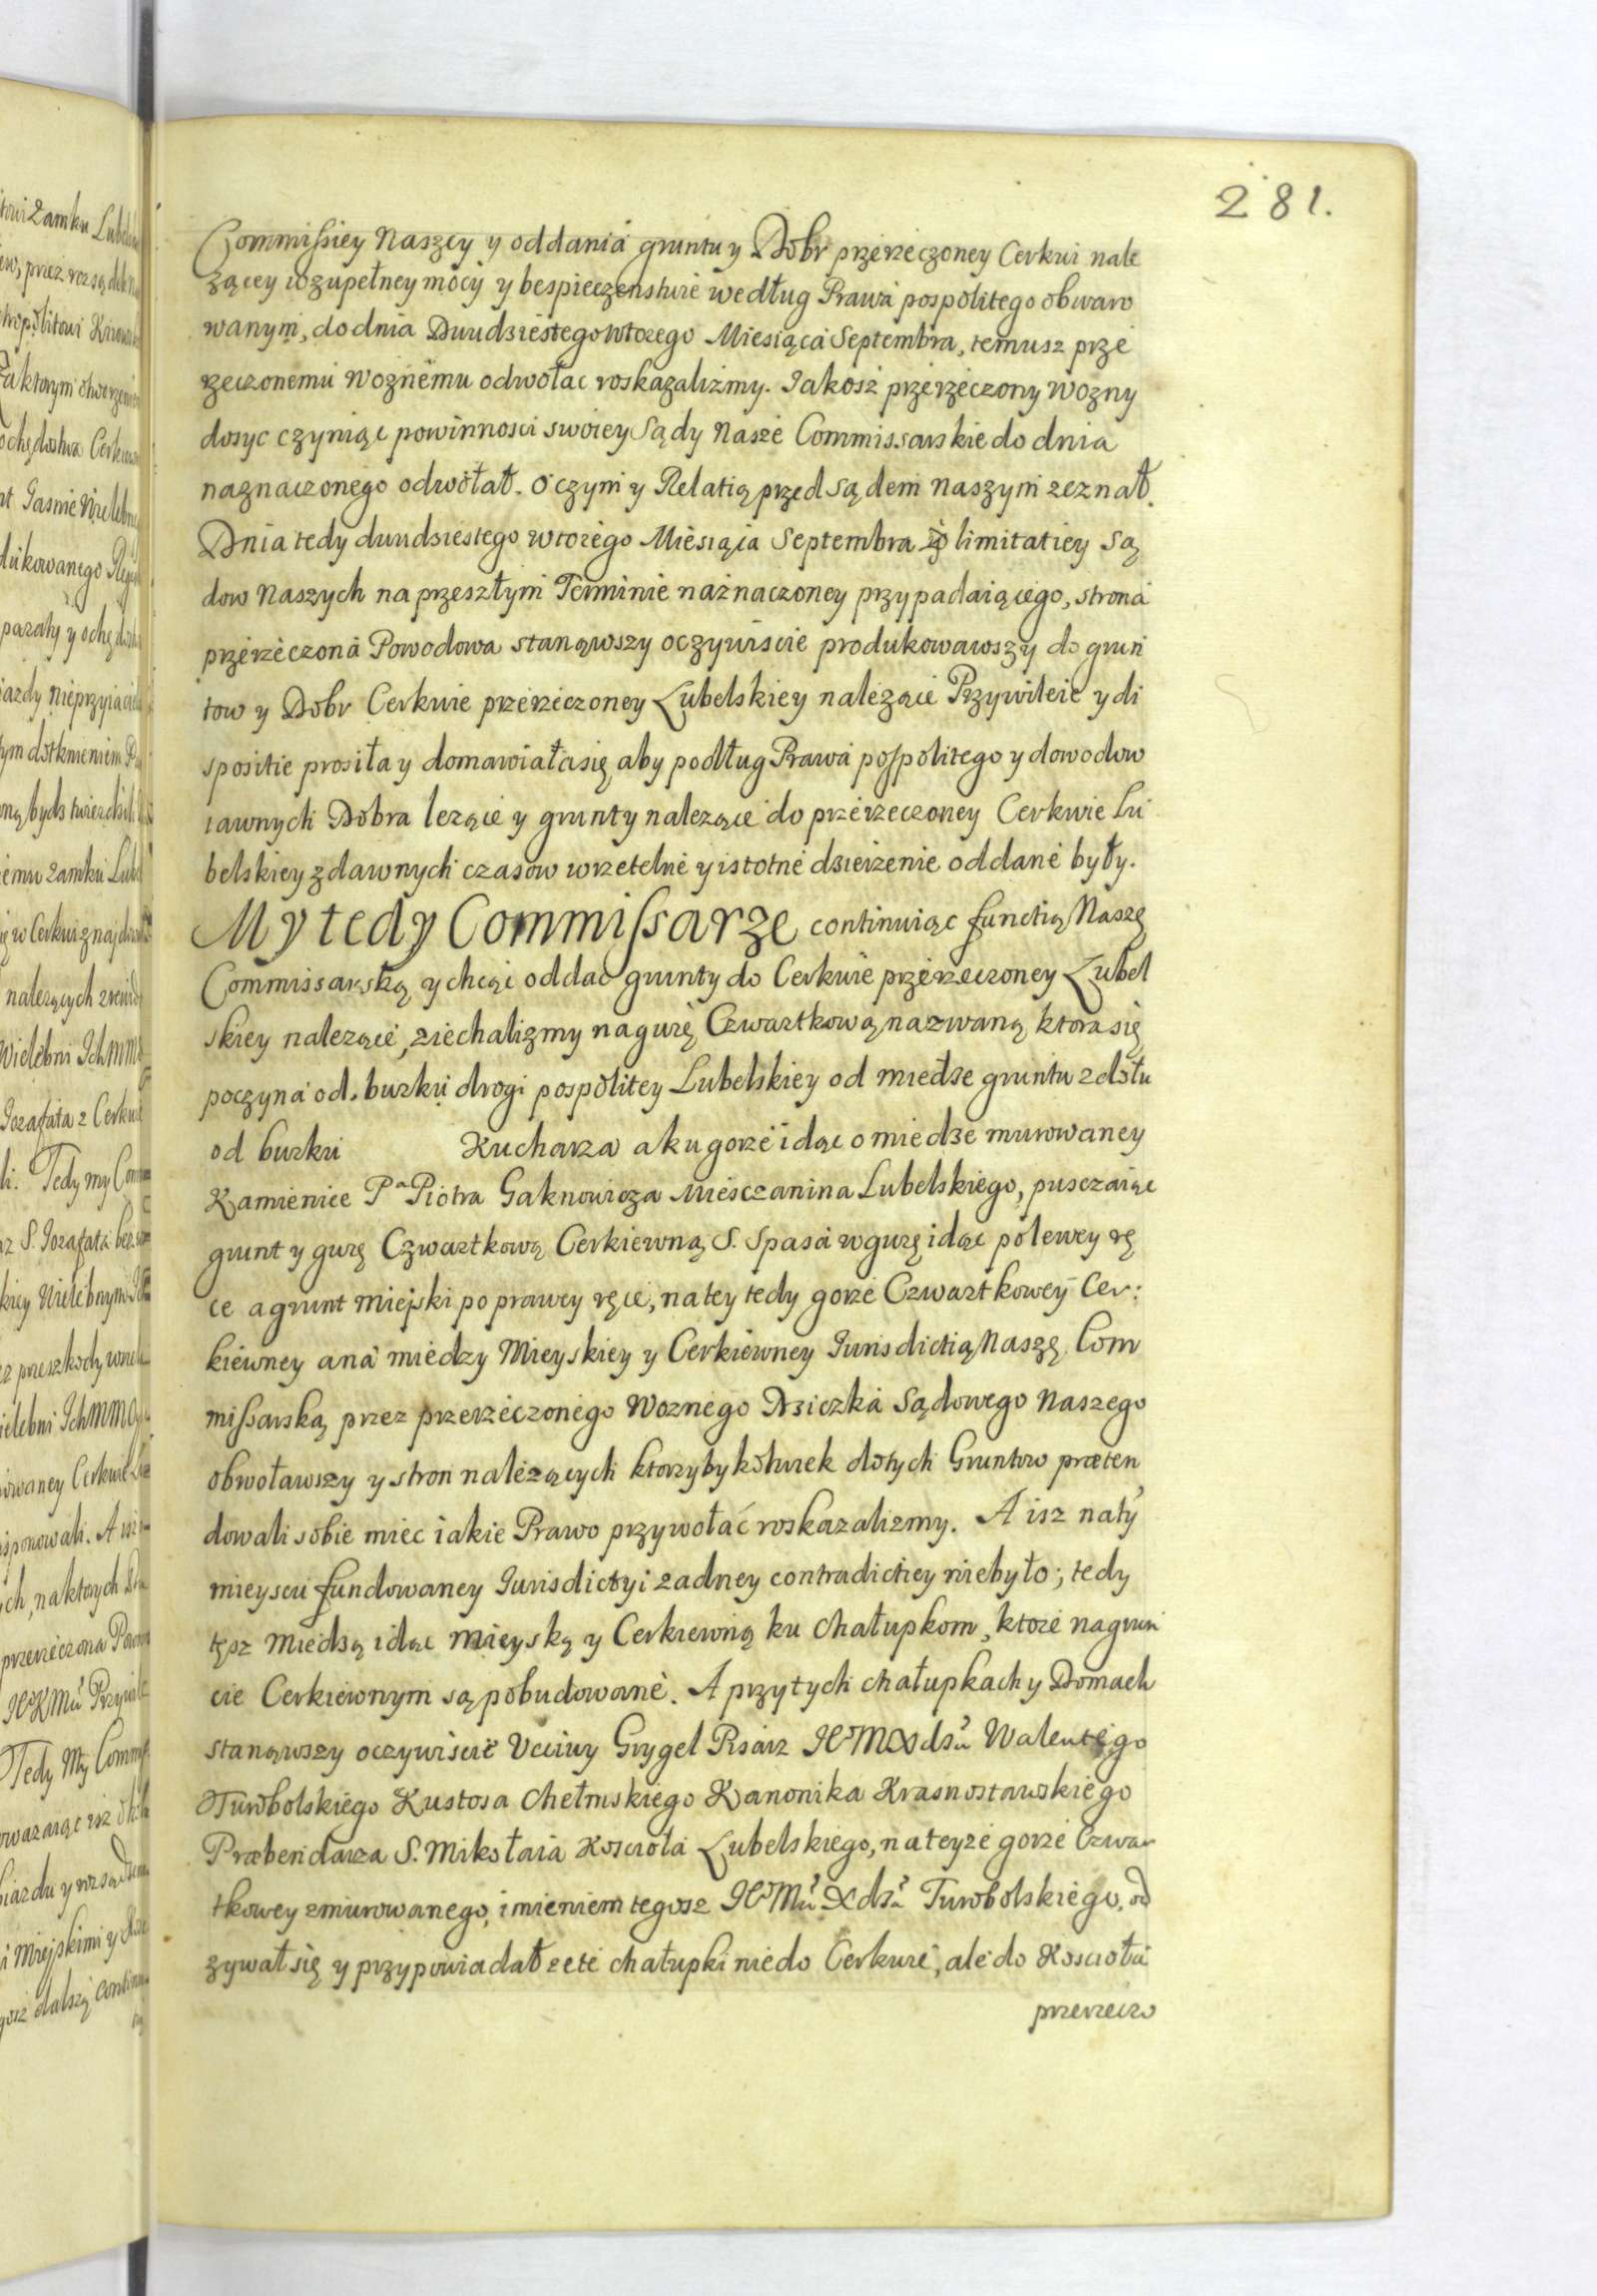 281.
Commissiey Naszey y oddania gruntu y Dobr przerzeczoney Cerkwi nale
zącey w zupełney mocy y bespieczenstwie według Prawa pospolitego obwaro
wanym, do dnia Dwudziestego wtorego Miesiąca Septembra, temusz prze
rzeczonemu woznemu odwołac roskazalizmy. Jakosz przerzeczony wozny
dosyc czyniąc powinnosci swoiey Sądy Nasze Commissarskie do dnia
naznaczonego odwołał. o czym y Relatią przed sądem naszym zeznał.
Dnia tedy dwudziestego wtorego Miesiąca Septembra z limitatiey Są
dow Naszych na przeszłym Terminie naznaczoney przypadaiącego, strona
przerzeczona Powodowa stanąwszy oczywiscie produkowawszy do grun
tow y Dobr Cerkwie przerzeczoney Lubelskiey należące Przywileie y di
spositie prosiła y domawiała się aby podług Prawa pospolitego y dowodow
iawnych Dobra lezące y grunty nalezące do przerzeczoney Cerkwie Lu
belskiey z dawnych czasow w rzetelne y istotne dzierzenie oddane były.
My tedy Commissarze continuiąc functią Naszę
Commissarską y chcąc oddac grunty do Cerkwie przerzeczoney Lubel
skiey nalezące, ziechalizmy na gurę Czwartkową nazwaną ktora się
poczyna od burku drogi pospolitey Lubelskiey od miedze gruntu z dołu
od burku Kucharza a ku gorze idąc o miedze murowaney
Kamienice Pa Piotra Gaknowicza Miesczanina Lubelskiego, pusczaiąc
grunt y gurę Czwartkową Cerkiewną S. Spasa w gurę idąc po lewey rę
ce a grunt miejski po prawey ręce, na tey tedy gorze Czwartkowey Cer:
kiewney ana miedzy Mieyskiey y Cerkiewney Jurisdictią Naszę Com
missarską przez przerzeczonego Woznego Dziczka Sądowego Naszego
obwoławszy y stron należących ktorzybykolwiek do tych Gruntow præten
dowali sobie miec iakie Prawo przywołać roskazalizmy. A isz na ty
mieyscu fundowaney Jurisdictyi zadney contradictiey niebyło; tedy
tąsz miedzą idąc mieyską y Cerkiewną ku Chałupkom, ktore na grun
cie Cerkiewnym są pobudowane. A przy tych chałupkach y Domach
stanąwszy oczywiscie Ucciwy Grygel Pisarz Walentego
Turobolskiego Kustosa Chełmskiego Kanonika Krasnostawskiego
Præbendarza S. Mikołaia Koscioła Lubelskiego, na teyze gorze Czwar
tkowey zmurowanego, imieniem tegosz Turobolskiego, od
zywał się y przypowiadał ze te chałupki nie do Cerkwie, ale do Koscioła
przerzeczo